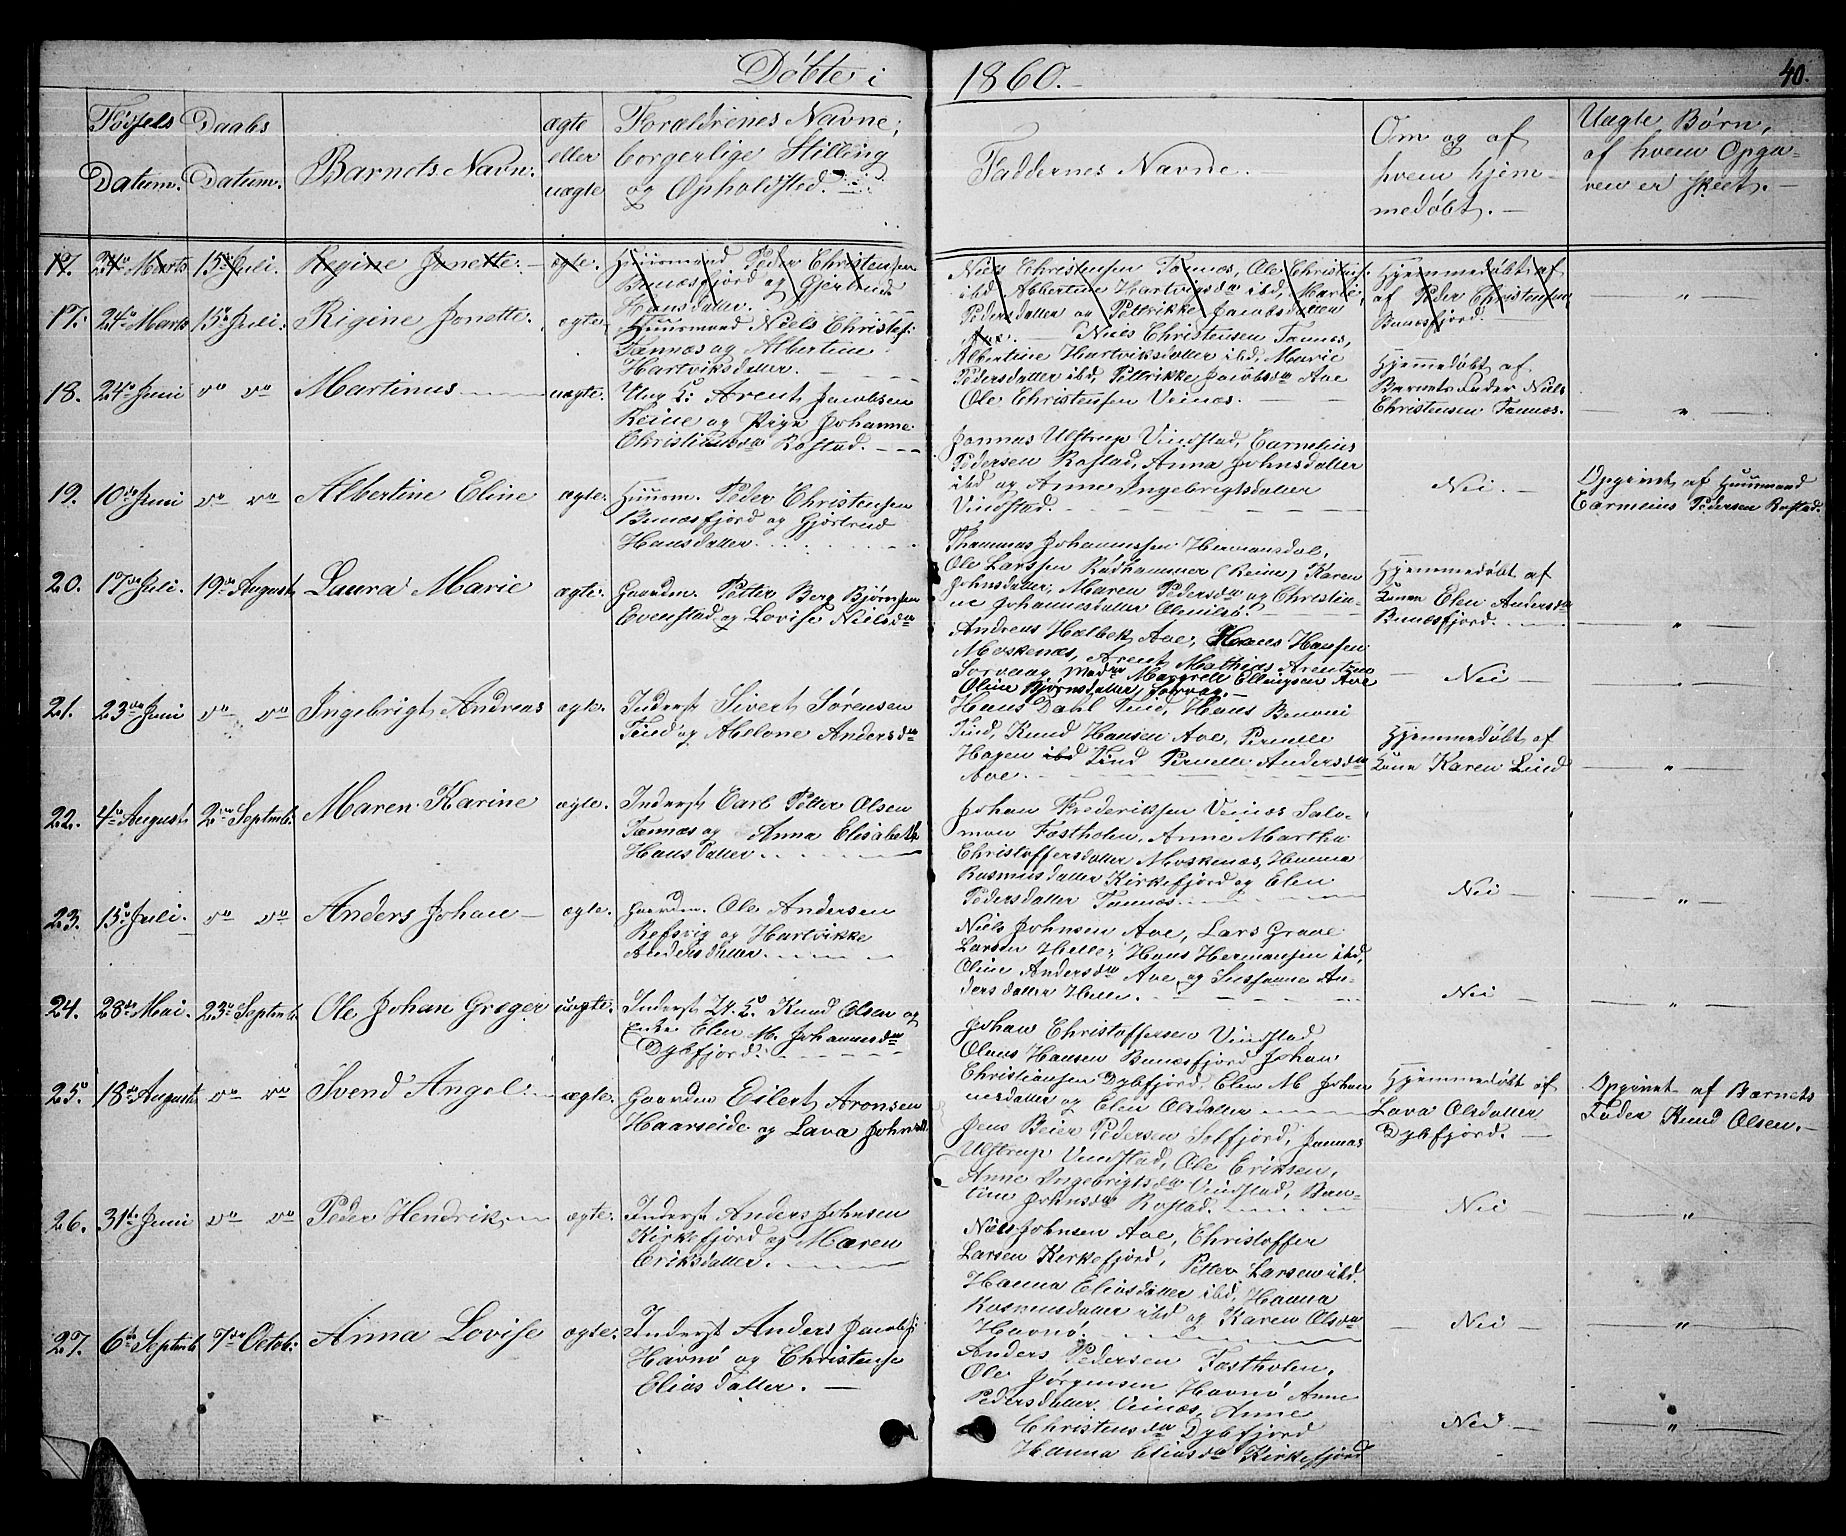 Døbte i 1860.- 40.
Fødsels Datum.
Daabs Datum.
Barnets Navn:
ægte eller uægte
Forældrenes Navne; borgerlige Stilling og Opholdsted.
Faddernes Navne.
Om og af hvem hjemmedøbt.-
Uægte Børn, af hvem Opgaven er skeet.-
17. 24de Marts 15de Juli. Regine Jonette. ægte. Huusmand Peder Christensen
Bunæsfjord og Gjertrude
Hansdatter.
Niels Christensen Tannæs, Ole Christens.
ibd Albertine Hartvigsda ibd, Marie
Pedersdatter og Petrikke Jacobsdatter
Aae.
Hjemmedøbt af
af Peder Christensen
Bunæsfjord.
17. 24de Marts 15de Juli. Regine Jonette. ægte. Huusmand Niels Christens:
Tannæs og Albertine
Hartviksdatter.
Niels Christensen Tannæs,
Albertine Hartviksdatter ibd, Marie
Pedersdatter ibd, Petrikke Jacobsda Aae
Ole Christensen Veinæs.
Hjemmedøbt af
Barnets Fader Niels
Christensen Tannæs.
18. 24de Juni do do Martinus uægte. Ung K: Arent Jacobsen
Reine og Pige Johanne
Christiansda Rostad.
Jonnas Ulstrup Vindstad, Carnelius
Pedersen Rostad, Anna Johnsdatter
ibd og Anne Ingebrigtsdatter
Vindstad.
Nei.
Opgivet af Huusmand
Carnelius Pedersen Rostad.
19. 10de Juni do do Albertine Eline ægte. Huusm. Peder Christensen
Bunæsfjord og Gjertrud
Hansdatter.
Thammas Johannesen Hermansdal,
Ole Larssen Rødhammer (Reine) Karen
Johnsdatter, Maren Pedersda og Christia-
ne Johannesdatter Olenilsø.
Hjemmedøbt af
Kone Elen Andersda
Bunæsfjord.
20. 17de Juli. 19de August Laura Marie ægte. Gaardm. Petter Berg Bjørnsen
Evenstad og Lovise Nielsda
Andreas Holbek Aae, Hans Hansen
Moskenæs, Arent Mathias Arentzen
Sørvaag, Madme Margrete Ellingsen Aae
Oline Bjørnsdatter, Sørvag.
Nei
21. 23de Juni do do Ingebrigt Andreas ægte. Inderst Sivert Sørensen
Tind og Abelone Andersda
Hans Dahl Tind, Hans Benoni
Tind, Knud Hansen Aae, Pernelle
Hagen ibd Tind Pernelle Andersda
Aae.
Hjemmedøbt af
Kone Karen Lind
22. 4de August 2den Septemb: Maren Karine ægte. Inderst Carl Petter Olsen
Tannæs og Anna Elisabeth
Hansdatter.
Johan Frederiksen Veinæs Salo-
mon Fastholen, Anne Martha
Christoffersdatter Moskenæs, Hanna
Rasmusdatter Kirkefjord og Elen
Pedersdatter Tannæs.
Nei
23. 15de Juli. do do Anders Johan ægte. Gaardm. Ole Andersen
Refsvig og Hartvikke
Andersdatter.
Niels Johnsen Aae, Lars Graae
Larsen Helle; Hans Hermansen ibd,
Oline Andersda Aae og Susanne An-
dersdatter Helle.
Nei
24. 28de Mai. 23de Septemb. Ole Johan Greger uægte. Inderst U. K. Knud Olsen og
Enke Elen M. Johannesda
Dybfjord.
Johan Christoffersen Vindstad
Olaus Hansen Bunæsfjord Johan
Christiansen Dybfjord, Elen M Johan-
nesdatter og Elen Olsdatter
Hjemmedøbt af
Lava Olsdatter
Dybfjord.
Opgivet af Barnets
Fader Knud Olsen.
25. 18de August do do Svend Angel: ægte. Gaardm Eilert Aronsen
Haarseide og Lava Johnsdtr
Jens Beier Pedersen Selfjord, Jonnas
Ulstrup Vindstad, Ole Eriksen,
Anne Ingebrigtsda Vindstad, Ban-
tine Johnsda Rostad.
Nei
26. 31te Juni do do Peder Hendrik ægte. Inderst Anders Johnsen
Kirkefjord og Maren
Eriksdatter.
Niels Johnsen Aae, Christoffer
Larsen Kirkefjord, Petter Larsen ibd.
Hanna Eliasdatter ibd, Hanna
Rasmusdatter ibd og Karen Olsda
Havnø.
Nei
27. 6te Septemb 7de Octob: Anna Lovise ægte. Inderst Anders Jacobs:
Havnø og Christense
Elias datter.
Anders Pedersen Fastholen,
Ole Jørgensen Havnø Anne
Pedersdatter Veinæs, Anne
Christensda Dybfjord
Hanna Eliasda Kirkefjord
Nei